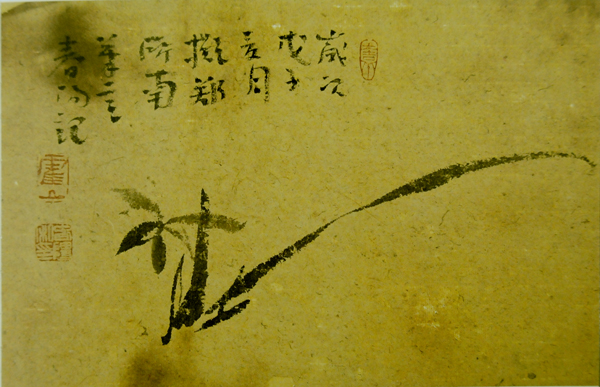 歲次
戊子
夏月
擬鄭
所南
筆意
春陽記